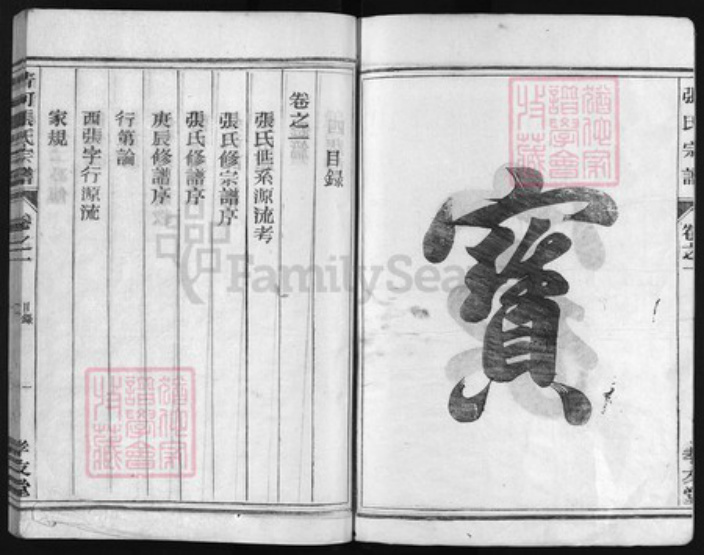 張氏宗譜 卷之一
孝友堂
寳
目錄
卷之一
張氏世系源流考
張氏修宗譜序
張氏修譜序
庚辰修譜序
行第論
西張字行源流
家規
清河張氏宗譜 卷之一 目錄 一
孝友堂
猶他家譜學會收藏
猶他家譜學會收藏
FamilySea